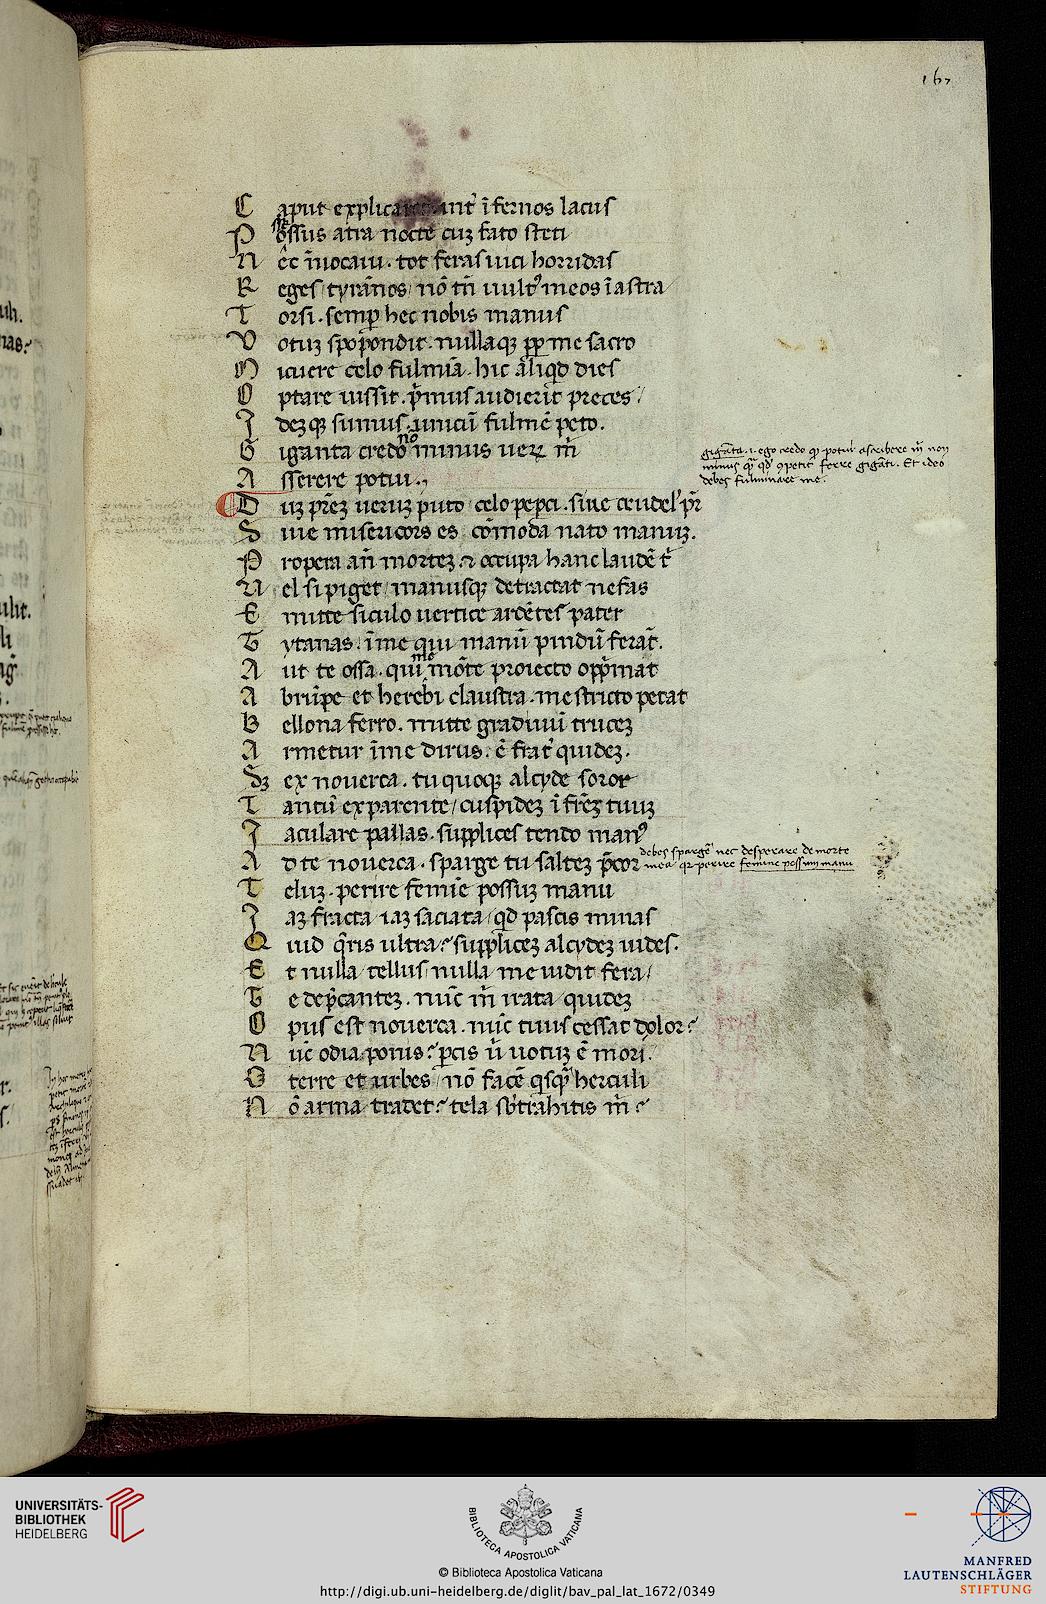 167
Caput explicaret. int᷑ ĩfernos lacus
Possus atra nocte cuʒ fato steti
Nec ĩuocaui. tot feras uici horridas
Reges tyrãnos nõ tñ uultꝰ meos ĩ astra
Torsi. semꝑ hec nobis manus
Uotuʒ spopondit. nullaqʒ ꝓpʳ me sacro
Micuere celo fulmĩa. hic aliqd dies
Optare iussit. pʳmus audierĩt preces
Ideʒqʒ sumus unicũ fulmẽ peto.
Giganta credo nõ minus ueꝝ m̃
Asserere potui.
Duʒ pr̃eʒ ueruʒ puto celo peꝑci. siue crudelꝰ pr̃
Siue misericors es cõmoda nato manuʒ.
Propera añ morteʒ ⁊ occupa hanc laudẽ t᷑
Uel si piget manusqʒ detractat nefas
Emitte siculo uertice ardẽtes pater
Tytanas. ĩ me qui manũ pindũ ferat̃.
Aut te ossa. qui me mõte proiecto opp̃mat
Abrũpe et herebi claustra. me stricto petat
Bellona ferro. mitte gradiuũ truceʒ
Armetur ĩ me dirus. ẽ frat᷑ quideʒ.
Sʒ ex nouerca. tu quoqʒ alcyde soror
Tantũ ex parente cuspideʒ ĩ fr̃eʒ tuuʒ
Iaculare pallas. supplices tendo manꝰ
Ad te nouerca. sparge tu salteʒ p̃cor
Teluʒ. perire femĩe possuʒ manu
Iaʒ fracta iaʒ saciata qd pascis minas
Quid q̃ris ultra? suppliceʒ alcydeʒ uides.
Et nulla tellus nulla me uidit fera
Te dep̃canteʒ. nũc m̃ irata quideʒ
Opus est nouerca. nũc tuus cessat dolor?
Nũc odia ponis? ꝑcis ũ uotuʒ ẽ mori.
O terre et urbes nõ facẽ qsq̃ herculi
Nõ arma tradet? tela sb̾trahitis m̃?
giganta .i. ego credo ꝙ potui ascribere m̃ non
minus q̃ qd ꝯpetit ferre giganti. Et ideo
debes fulminare me.
debes sparge᷑ nec desperare de morte
mea qr perire femine possum manu
UNIVERSITÄTS-
BIBLIOTHEK
HEIDELBERG
BIBLIOTECA APOSTOLICA VATICANA
© Biblioteca Apostolica Vaticana
http://digi.ub.uni-heidelberg.de/diglit/bav_pal_lat_1672/0349
MANFRED
LAUTENSCHLÄGER
STIFTUNG